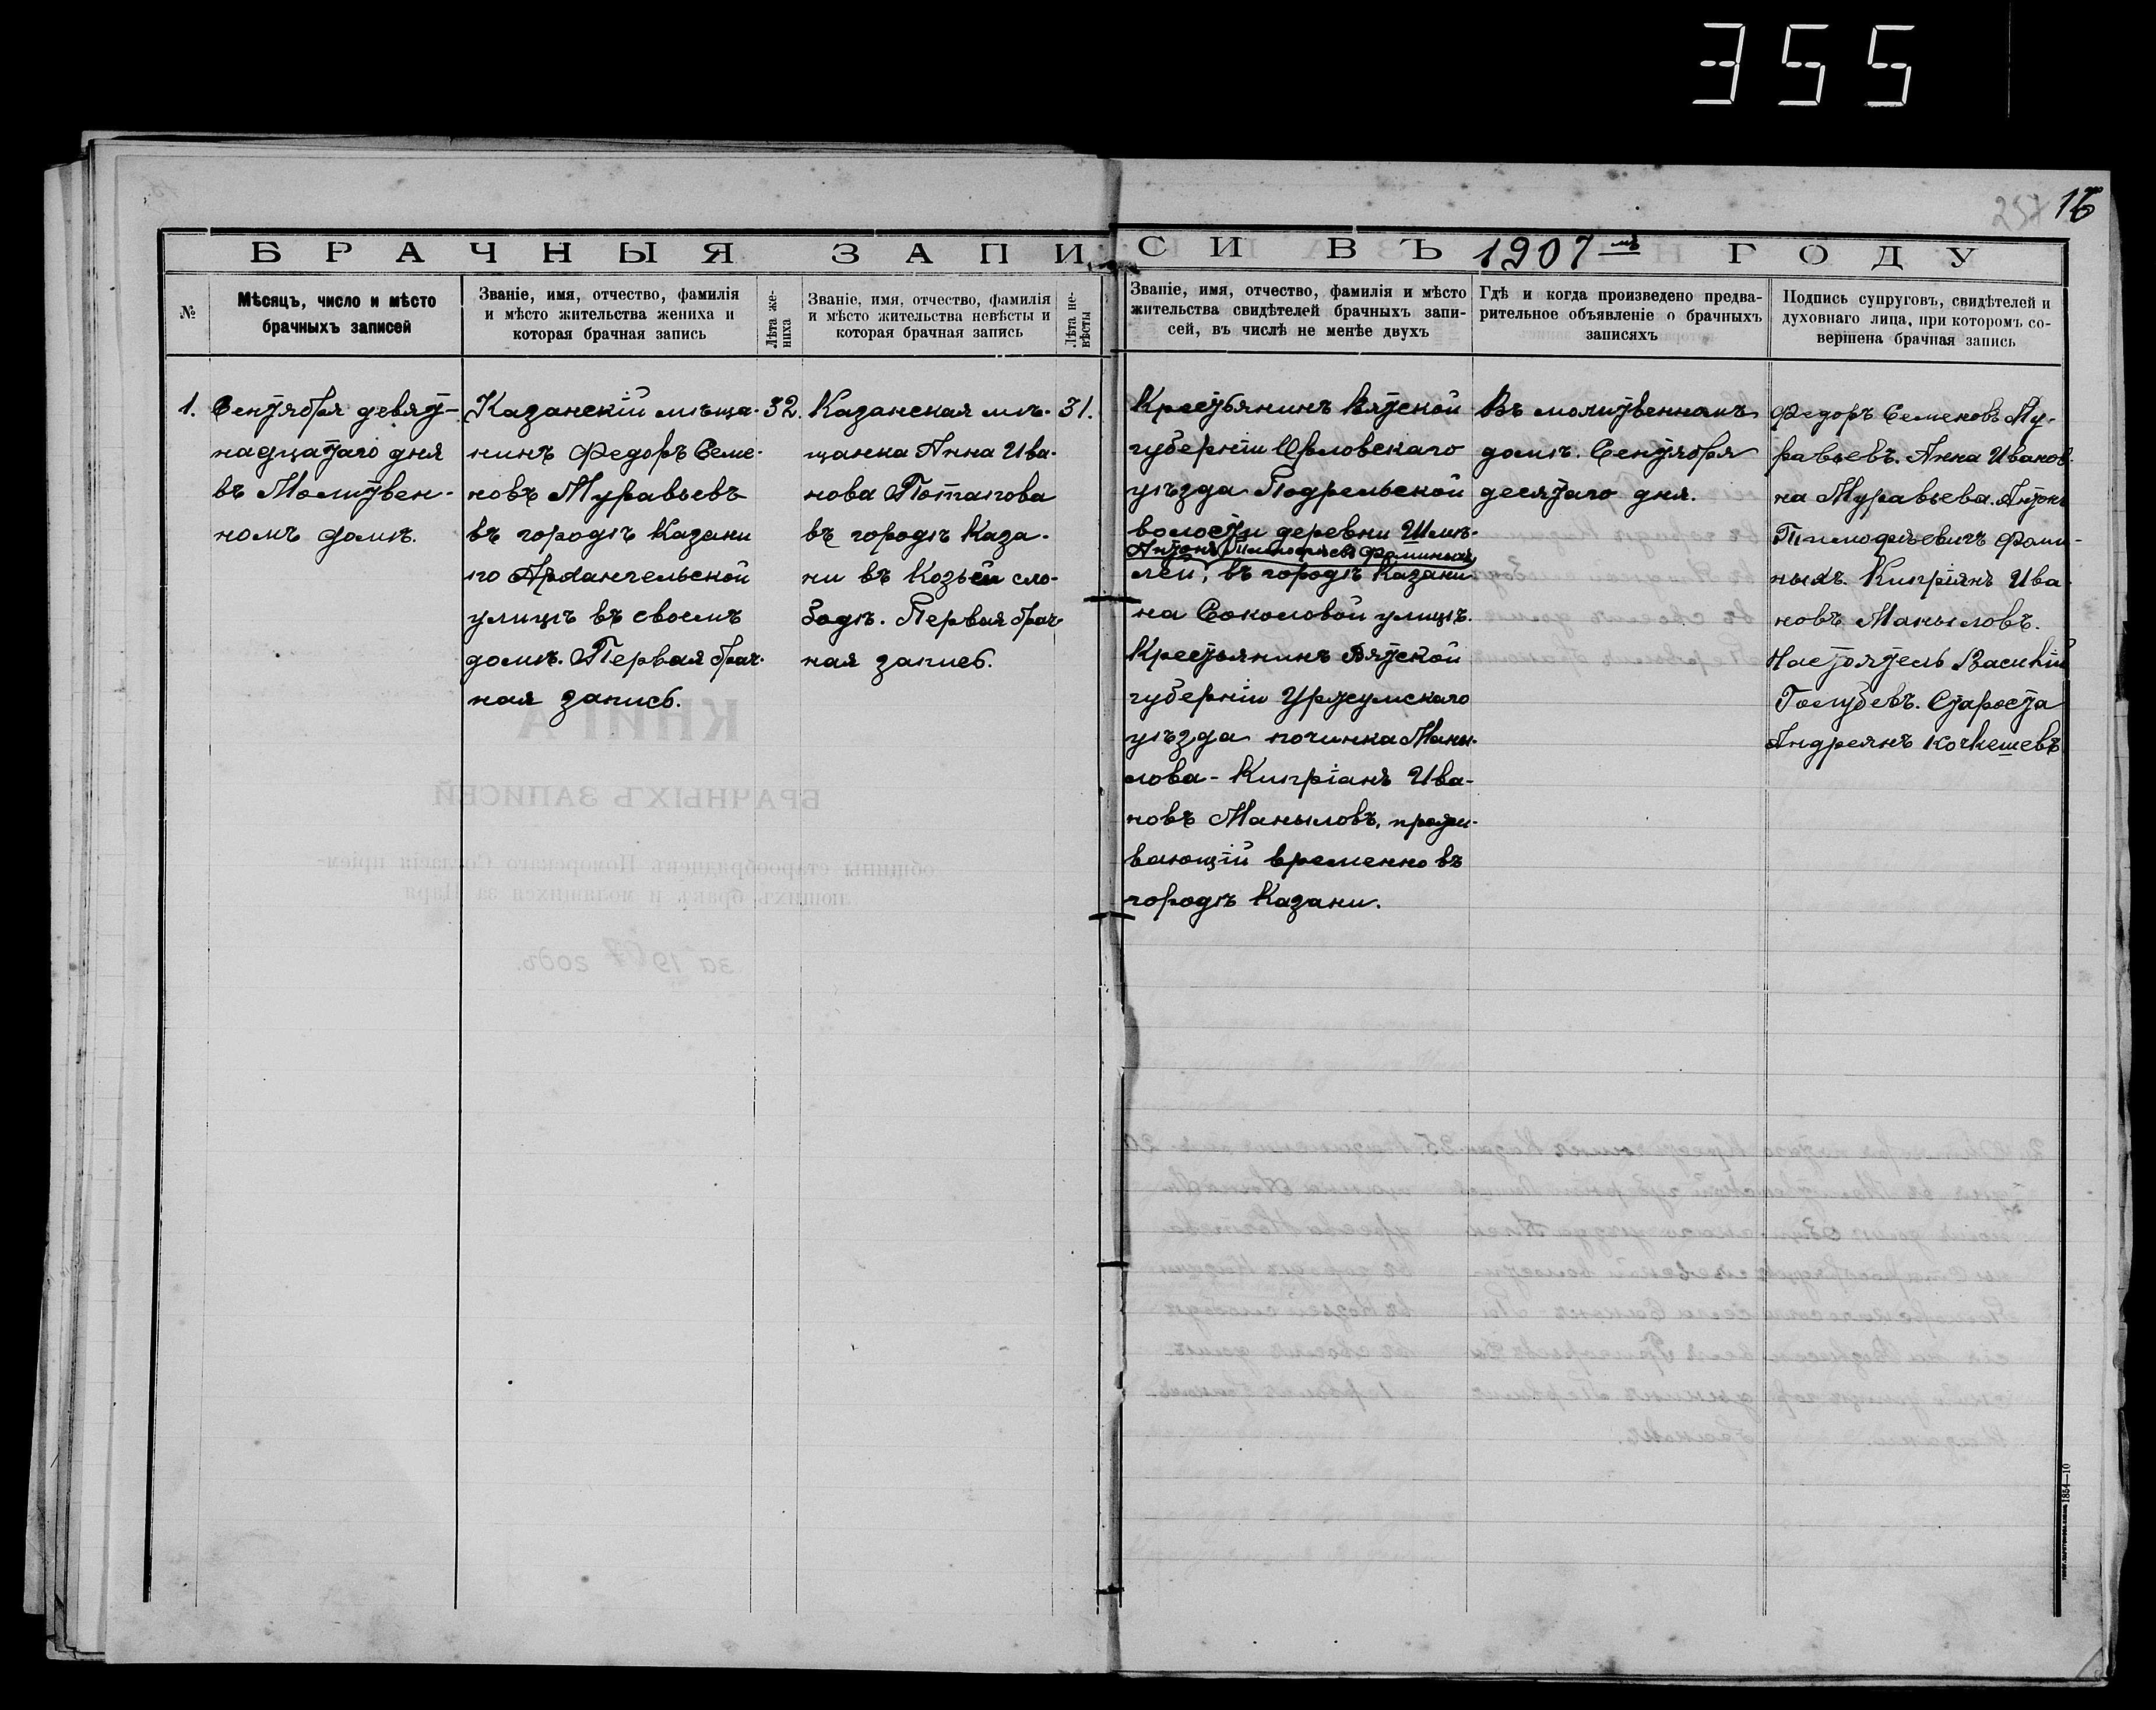 355
257 16
БРАЧНЫЯ ЗАПИСИ ВЪ 1907мъ ГОДУ
№
Мѣсяцъ, число и мѣсто
брачныхъ записей
Званіе, имя, отчество, фамилія
и мѣсто жительства жениха и
которая брачная запись
Лѣта же-
ниха
Званіе, имя, отчество, фамилія
и мѣсто жительства невѣсты и
которая брачная запись
Лѣта не-
вѣсты
Званіе, имя, отчество, фамилія и мѣсто
жительства свидѣтелей брачныхъ запи-
сей, въ числѣ не менѣе двухъ
Гдѣ и когда произведено предва-
рительное объявленіе о брачныхъ
записяхъ
Подпись супруговъ, свидѣтелей и
духовнаго лица, при которомъ со-
вершена брачная запись
1.
Сентября девят-
надцатаго дня
въ Молитвен-
номъ домѣ.
Казанскій мѣща-
нинъ Федоръ Семе-
новъ Муравьевъ
въ городѣ Казани
по Архангельской
улицѣ въ своемъ
домѣ. Первая брач-
ная запись.
32.
Казанская мѣ-
щанка Анна Ива-
нова Потапова
въ городѣ Каза-
ни въ Козьей сло-
бодѣ. Первая брач-
ная запись.
31.
Крестьянинъ Вятской
губерніи Орловскаго
уѣзда Подрельской
волости деревни Шмѣ-
Антонъ Тимофеевъ Фоминыхъ
леи, въ городѣ Казани
на Соколовой улицѣ.
Крестьянинъ Вятской
губерніи Уржумскаго
уѣзда починка Маны-
лова - Кипріанъ Ива-
новъ Маныловъ, прожи-
вающій временно въ
городѣ Казани.
Въ молитвенномъ
домѣ. Сентября
десятаго дня.
Федоръ Семеновъ Му-
равьевъ. Анна Иванов-
на Муравьева. Антонъ
Тимофеевичъ Фоми-
ныхъ. Кипріянъ Ива-
новъ Маныловъ.
Настоятель Василій
Голубевъ. Староста
Андреянъ Кочкешевъ
КНИГА
БРАЧНЫХЪ ЗАПИСЕЙ
общины старообрядцевъ Поморскаго Согласія пріем-
лющихъ бракъ и молящихся за Царя
за 1907 годъ.
1854—10